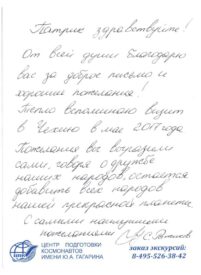 Патрик здравствуйте!
От всей души благодарю
вас за доброе письмо и
хорошие пожелания!
Тепло вспоминаю визит
в Чехию в мае 2017 года
Пожелания вы выразили
сами, говоря о дружбе
наших народов, остается
добавить всех народов
нашей прекрасной планеты.
С самыми наилучшими
пожеланиями
ЦЕНТР ПОДГОТОВКИ
КОСМОНАВТОВ
ИМЕНИ Ю.А. ГАГАРИНА
заказ экскурсий:
8-495-526-38-42